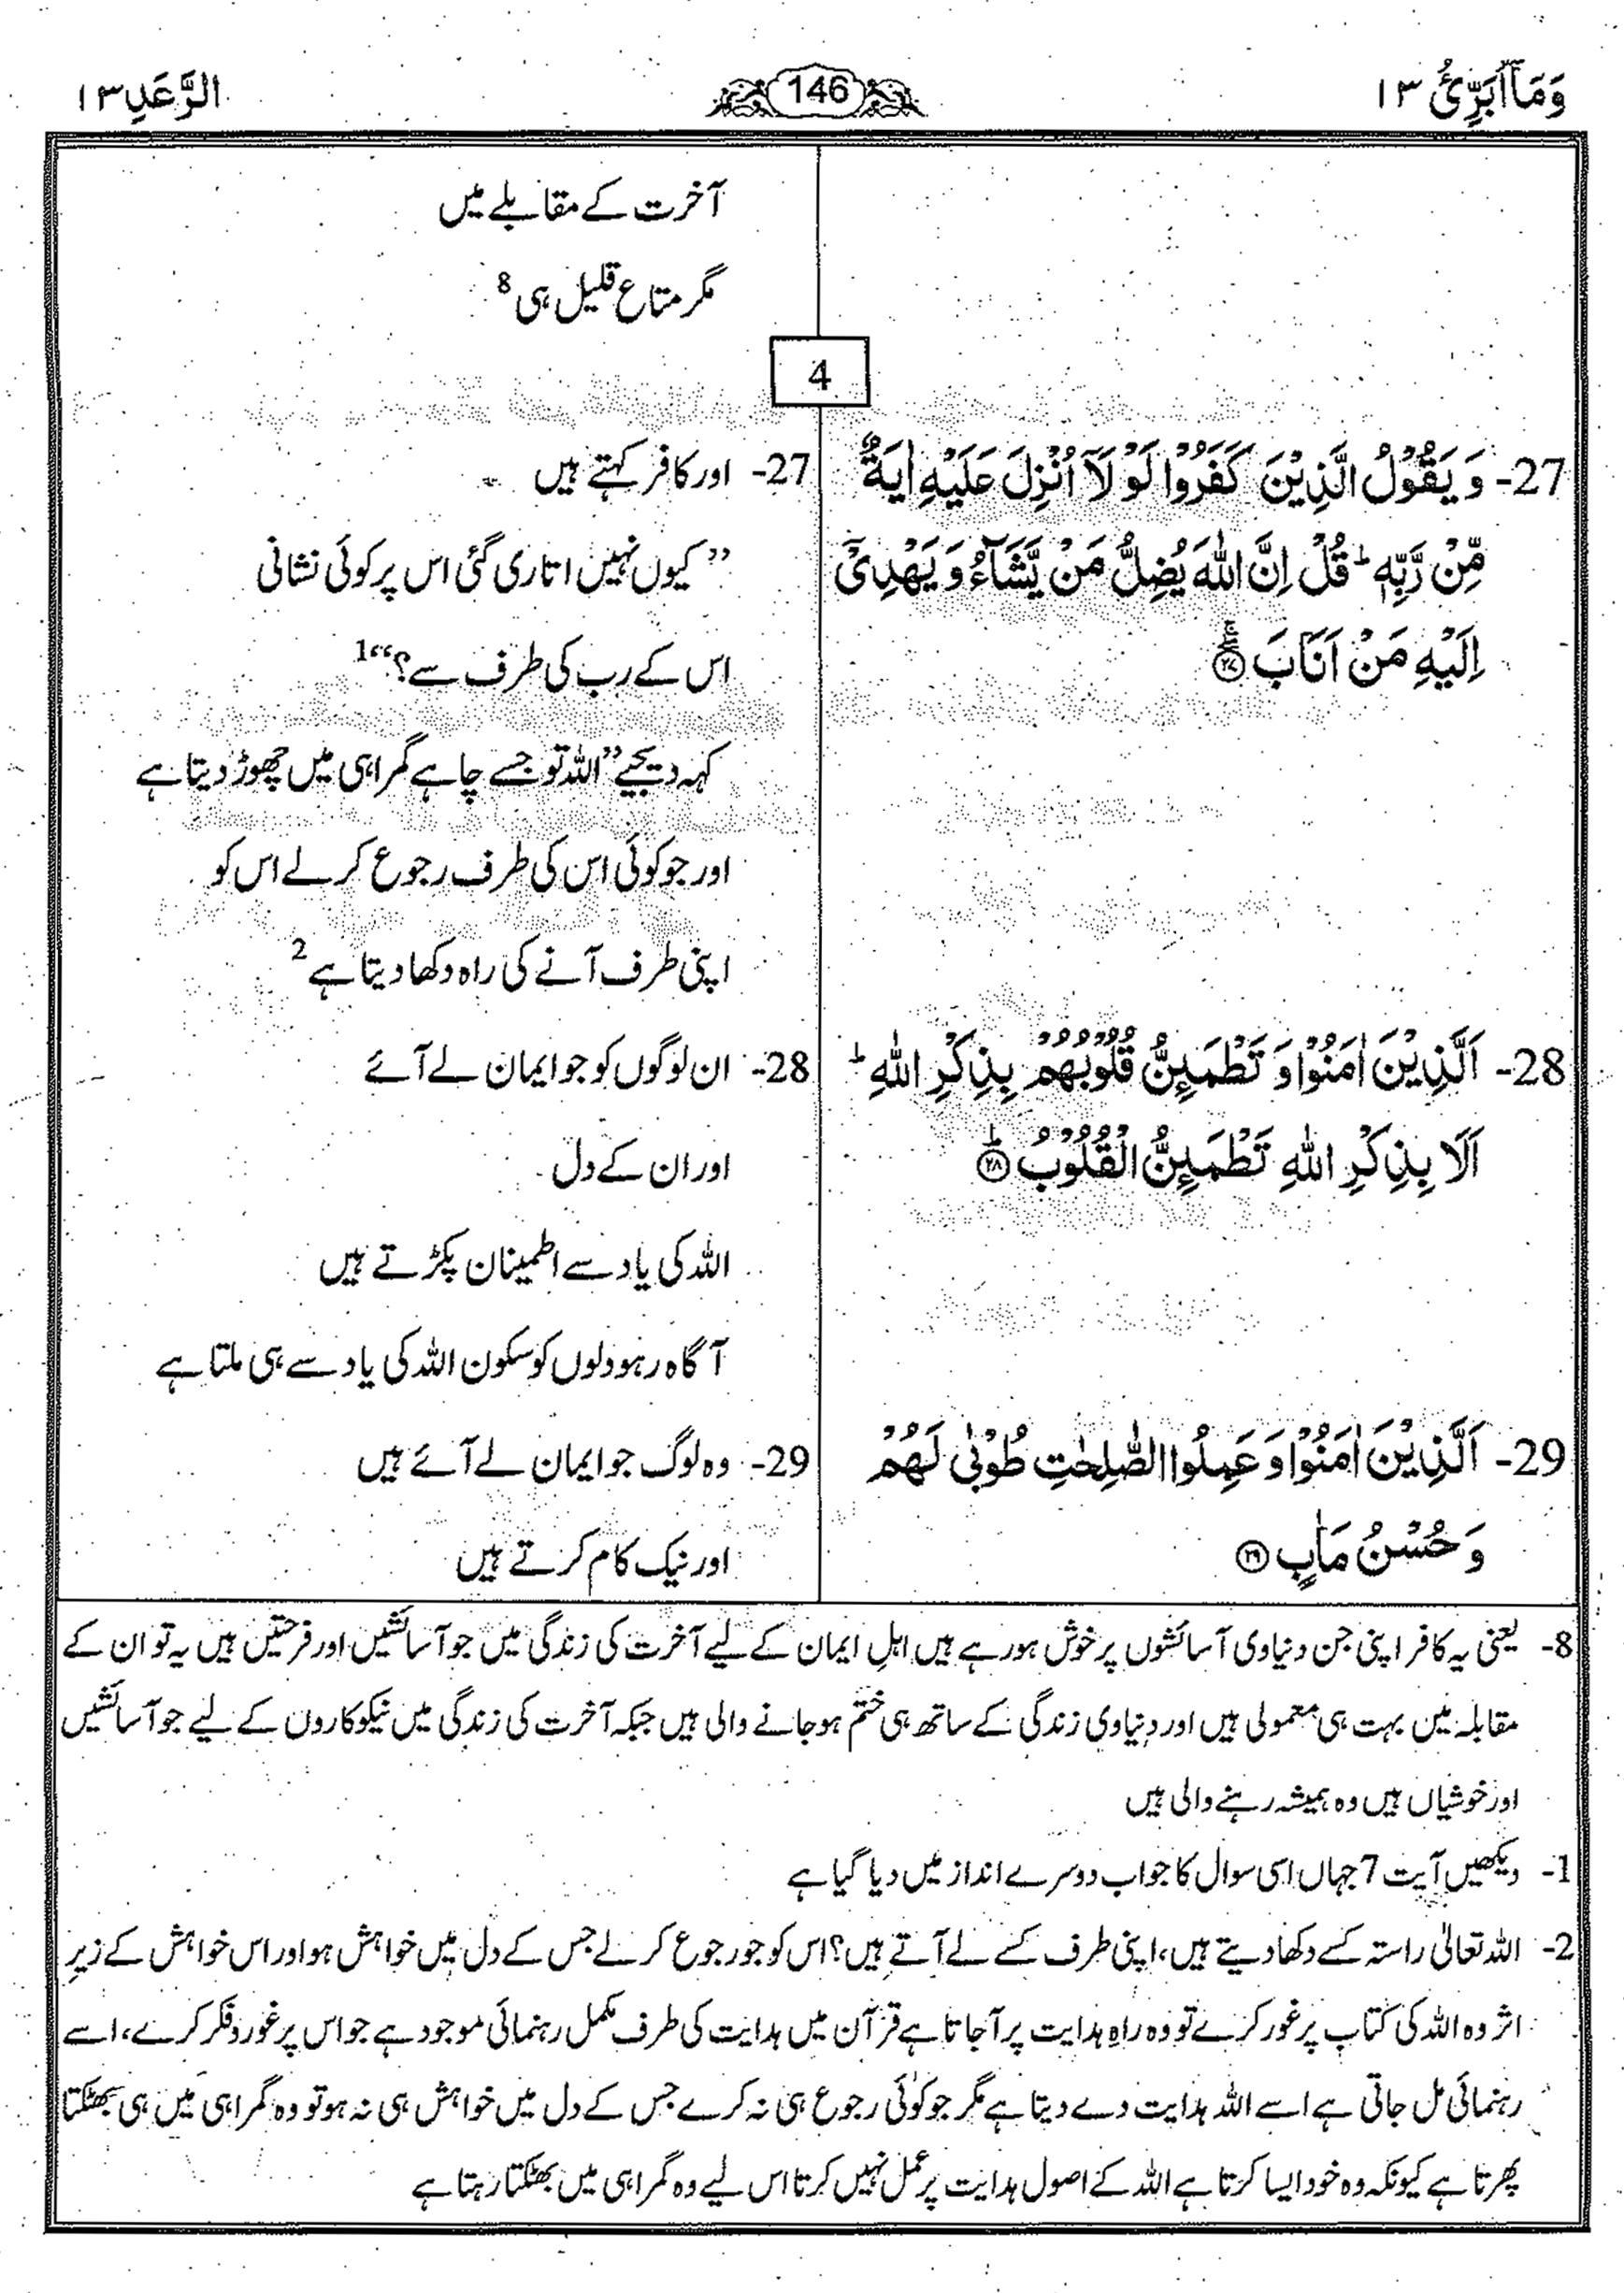 وَمَآ اُبَرِّئُ ۱۳
146
الرَّعْدِ ۱۳
آخرت کے مقابلے میں
مگر متاع قلیل ہی 8
4
27- وَ يَقُوْلُ الَّذِيْنَ كَفَرُوْا لَوْ لَاۤ اُنْزِلَ عَلَيْهِ اٰيَةٌ
مِّنْ رَّبِّهٖ ؕ قُلْ اِنَّ اللّٰهَ يُضِلُّ مَنْ يَّشَآءُ وَ يَهْدِيْۤ
اِلَيْهِ مَنْ اَنَابَ ۲۷
27- اور کافر کہتے ہیں
”کیوں نہیں اتاری گئی اس پر کوئی نشانی
اس کے رب کی طرف سے؟“ 1
کہہ دیجیے ”اللہ تو جسے چاہے گمراہی میں چھوڑ دیتا ہے
اور جو کوئی اس کی طرف رجوع کر لے اس کو
اپنی طرف آنے کی راہ دکھا دیتا ہے 2
28- اَلَّذِيْنَ اٰمَنُوْا وَ تَطْمَىِٕنُّ قُلُوْبُهُمْ بِذِكْرِ اللّٰهِ ؕ
اَلَا بِذِكْرِ اللّٰهِ تَطْمَىِٕنُّ الْقُلُوْبُ ۲۸ ؕ
28- ان لوگوں کو جو ایمان لے آئے
اور ان کے دل
اللہ کی یاد سے اطمینان پکڑتے ہیں
آگاہ رہو دلوں کو سکون اللہ کی یاد سے ہی ملتا ہے
29- اَلَّذِيْنَ اٰمَنُوْا وَ عَمِلُوا الصّٰلِحٰتِ طُوْبٰى لَهُمْ
وَ حُسْنُ مَاٰبٍ ۲۹
29- وہ لوگ جو ایمان لے آئے ہیں
اور نیک کام کرتے ہیں
8- یعنی یہ کافر اپنی جن دنیاوی آسائشوں پر خوش ہو رہے ہیں اہلِ ایمان کے لیے آخرت کی زندگی میں جو آسائشیں اور فرحتیں ہیں یہ تو ان کے
مقابلہ میں بہت ہی معمولی ہیں اور دنیاوی زندگی کے ساتھ ہی ختم ہو جانے والی ہیں جبکہ آخرت کی زندگی میں نیکوکاروں کے لیے جو آسائشیں
اور خوشیاں ہیں وہ ہمیشہ رہنے والی ہیں
1- دیکھیں آیت 7 جہاں اسی سوال کا جواب دوسرے انداز میں دیا گیا ہے
2- اللہ تعالیٰ راستہ کسے دکھا دیتے ہیں، اپنی طرف کسے لے آتے ہیں؟ اس کو جو رجوع کر لے جس کے دل میں خواہش ہو اور اس خواہش کے زیرِ
اثر وہ اللہ کی کتاب پر غور کرے تو وہ راہِ ہدایت پر آجاتا ہے قرآن میں ہدایت کی طرف مکمل رہنمائی موجود ہے جو اس پر غور و فکر کرے، اسے
رہنمائی مل جاتی ہے اسے اللہ ہدایت دے دیتا ہے مگر جو کوئی رجوع ہی نہ کرے جس کے دل میں خواہش ہی نہ ہو تو وہ گمراہی میں ہی بھٹکتا
پھرتا ہے کیونکہ وہ خود ایسا کرتا ہے اللہ کے اصول ہدایت پر عمل نہیں کرتا اس لیے وہ گمراہی میں بھٹکتا رہتا ہے